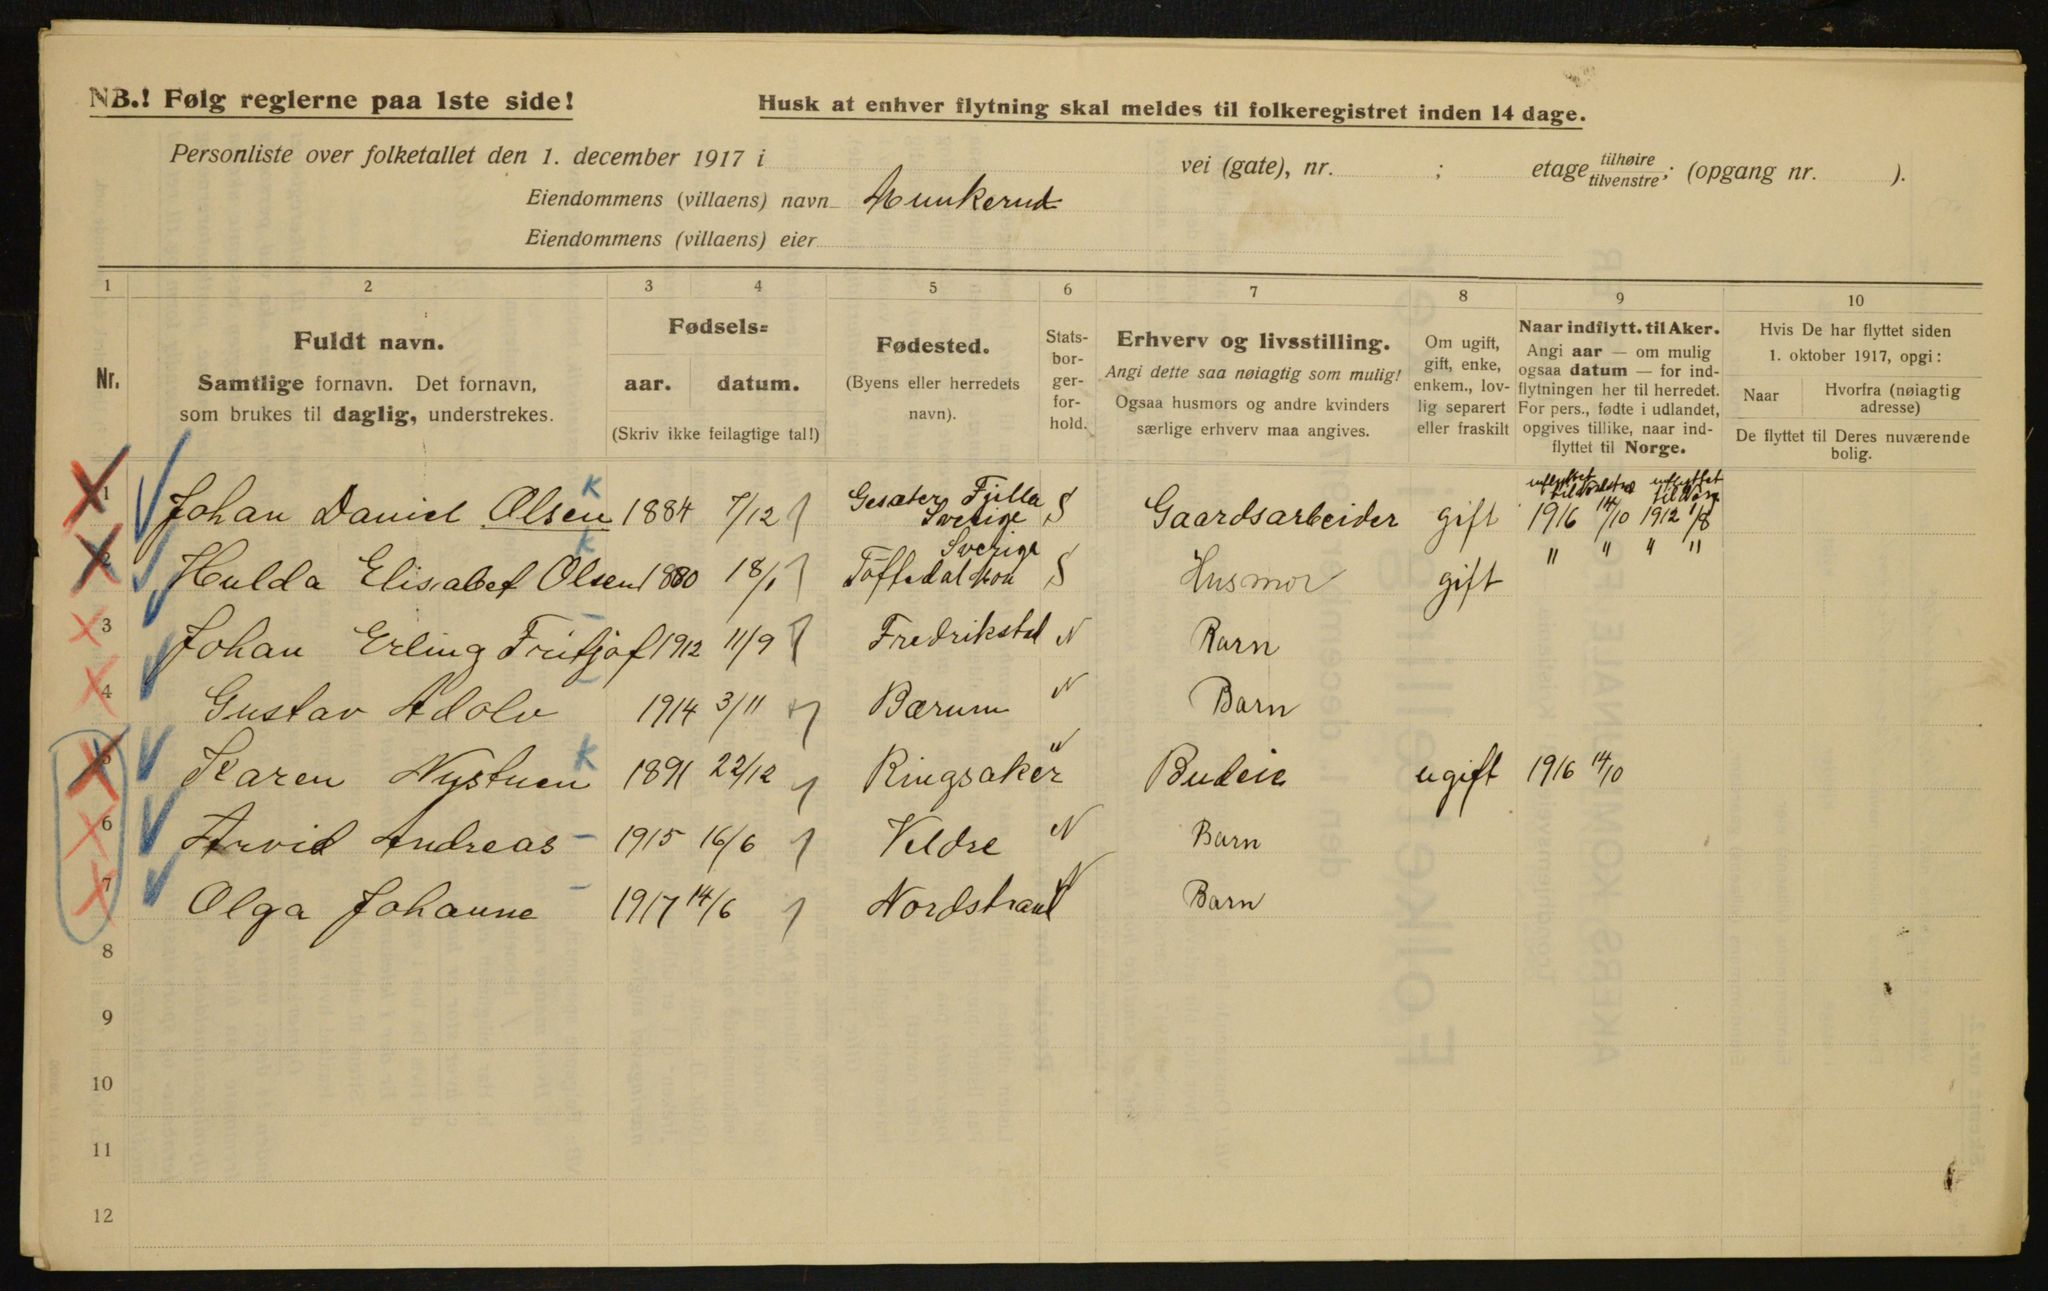 NB.! Følg reglerne paa 1ste side!
Husk at enhver flytning skal meldes til folkeregistret inden 14 dage.
Personliste over folketallet den 1. december 1917 i vei (gate), nr. ; etage tilhøire tilvenstre; (opgang nr. ).
Eiendommens (villaens) navn Munkerud
Eiendommens (villaens) eier
1 2 3 4 5 6 7 8 9 10
Nr.
Fuldt navn.
Samtlige fornavn. Det fornavn,
som brukes til daglig, understrekes.
Fødsels=
aar. datum.
(Skriv ikke feilagtige tal!)
Fødested.
(Byens eller herredets
navn).
Stats-
bor-
ger-
for-
hold.
Erhverv og livsstilling.
Angi dette saa nøiagtig som mulig!
Ogsaa husmors og andre kvinders
særlige erhverv maa angives.
Om ugift,
gift, enke,
enkem., lov-
lig separert
eller fraskilt
Naar indflytt. til Aker.
Angi aar — om mulig
ogsaa datum — for ind-
flytningen her til herredet.
For pers., fødte i udlandet,
opgives tillike, naar ind-
flyttet til Norge.
Hvis De har flyttet siden
1. oktober 1917, opgi:
Naar
Hvorfra (nøiagtig
adresse)
De flyttet til Deres nuværende
bolig.
1 Johan Daniel Olsen K 1884 7/12 Gesäter Sverige S Gaardsarbeider gift 1916 14/10 1912 1/8
2 Hulda Elisabet Olsen K 1880 18/1 Töftedal Sverige S Husmor gift " " " "
3 Johan Erling Fritjof 1912 11/9 Fredrikstad N Barn
4 Gustav Adolv 1914 3/11 Bærum N Barn
5 Karen Nystuen K 1891 22/12 Ringsaker N Budeie ugift 1916 14/10
6 Arvid Andreas – 1915 16/6 Veldre N Barn
7 Olga Johanne – 1917 14/6 Nordstrand N Barn
8
9
10
11
12